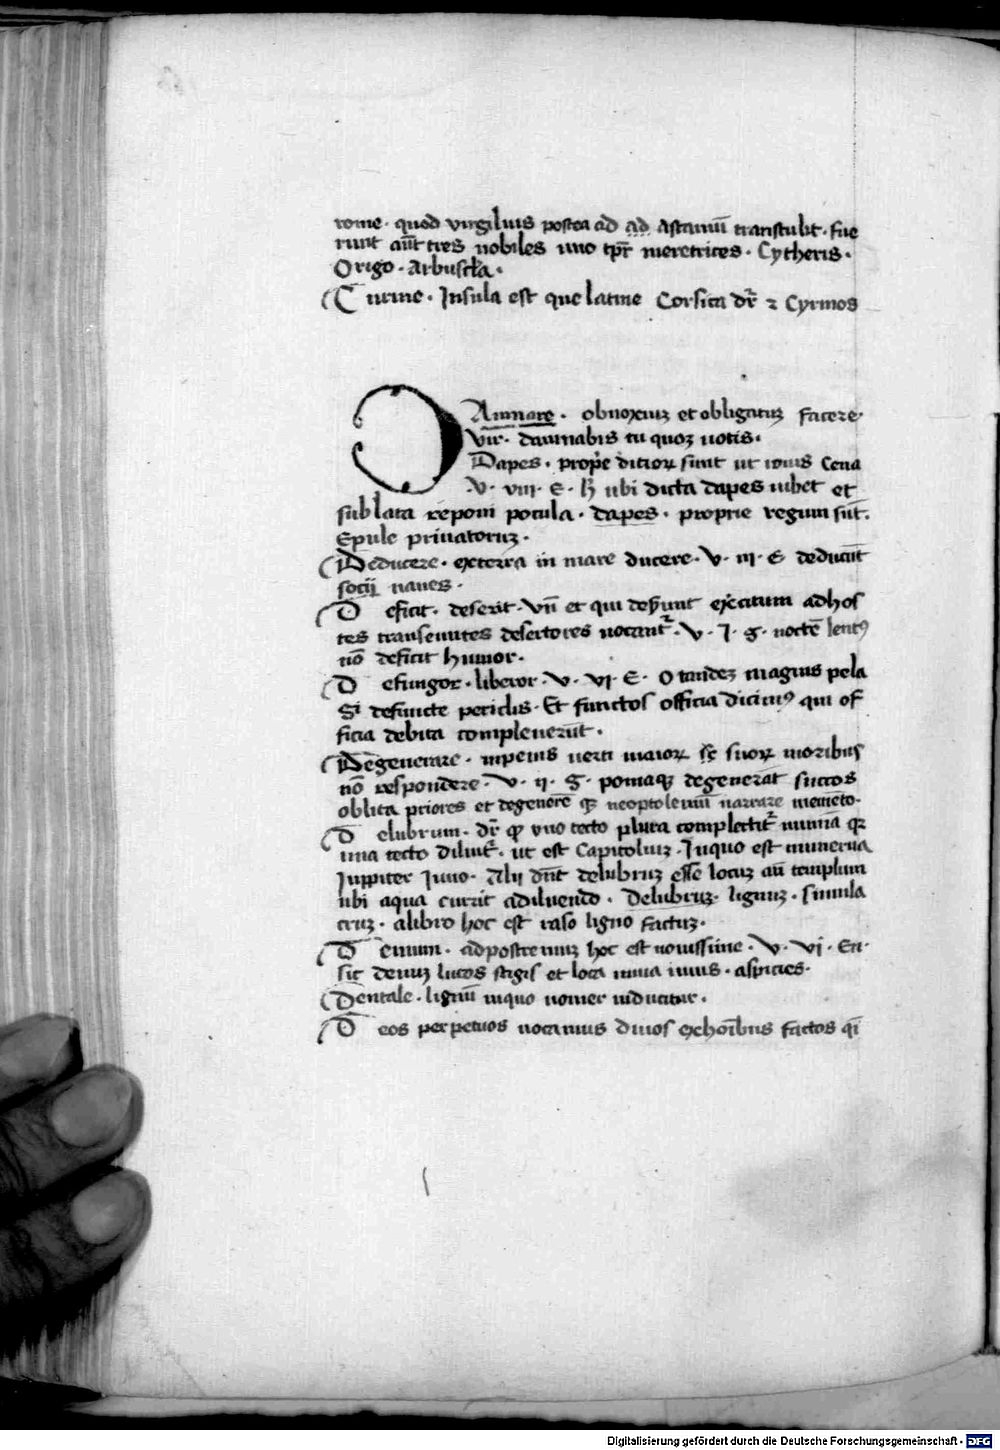 rome · quod virgilius postea ad ad Ascaniū transtulit · fue
runt aūt tres nobiles uno tꝑr̄ meretrices · Cytheris ·
Origo · Arbuscl̄a ·
C urine · Insula est que latine Corsica dr̄ ⁊ Cyrnos
DAmnare · obnoxiuꝫ et obligatuꝫ facere ·
Vir · damnabis tu quoqꝫ uotis ·
Dapes · propͥe ditioꝝ sunt ut iouis Cena
V · viii · E · ubi dicta dapes iubet et
sublata reponi pocula · dapes · proprie regum sūt ·
Epule priuatoruꝫ ·
Deducere · ex terra in mare ducere · V · iii · E · deducūt
socij naues ·
D eficit · deserit · Vn̄ et qui desꝑunt exͤrcitum ad hos
tes transeuntes desertores uocantͬ · V · I · g · noctē lentꝰ
nō deficit humor ·
D efungor · liberor · V · VI · E · O tandeꝫ magnis pela
gi defuncte periclis · Et functos officia dicimꝰ qui of
ficia debita compleuerūt ·
Degenerare · in peius uerti maioꝝ suoꝝ moribus
nō respondere · V · ii · g · pomaqꝫ degenerāt succos
oblita priores et degenerē qꝫ neoptolemū narrare memēto ·
D elubrum · dr̄ ꝙ vno tecto plura complectitͬ numīa qꝛ
una tecto diluitͬ · ut est Capitoliuꝫ · In quo est minerua
Iuppiter Iuno · Alij dn̄t delubruꝫ esse locuꝫ an̄ templum
ubi aqua currit a diluendo · Delubruꝫ · lignuꝫ · simula
cruꝫ · a libro hoc est raso ligno factuꝫ ·
D emum · ad postremuꝫ hoc est nouissime · V · VI · En ·
sic demuꝫ lucos stigis et loca inuia uiuis · aspicies ·
Dentale · lignū in quo uomer inducitur ·
D eos perpetuos uocamus diuos ex hoībus factos qī
Digitalisierung gefördert durch die Deutsche Forschungsgemeinschaft - DFG